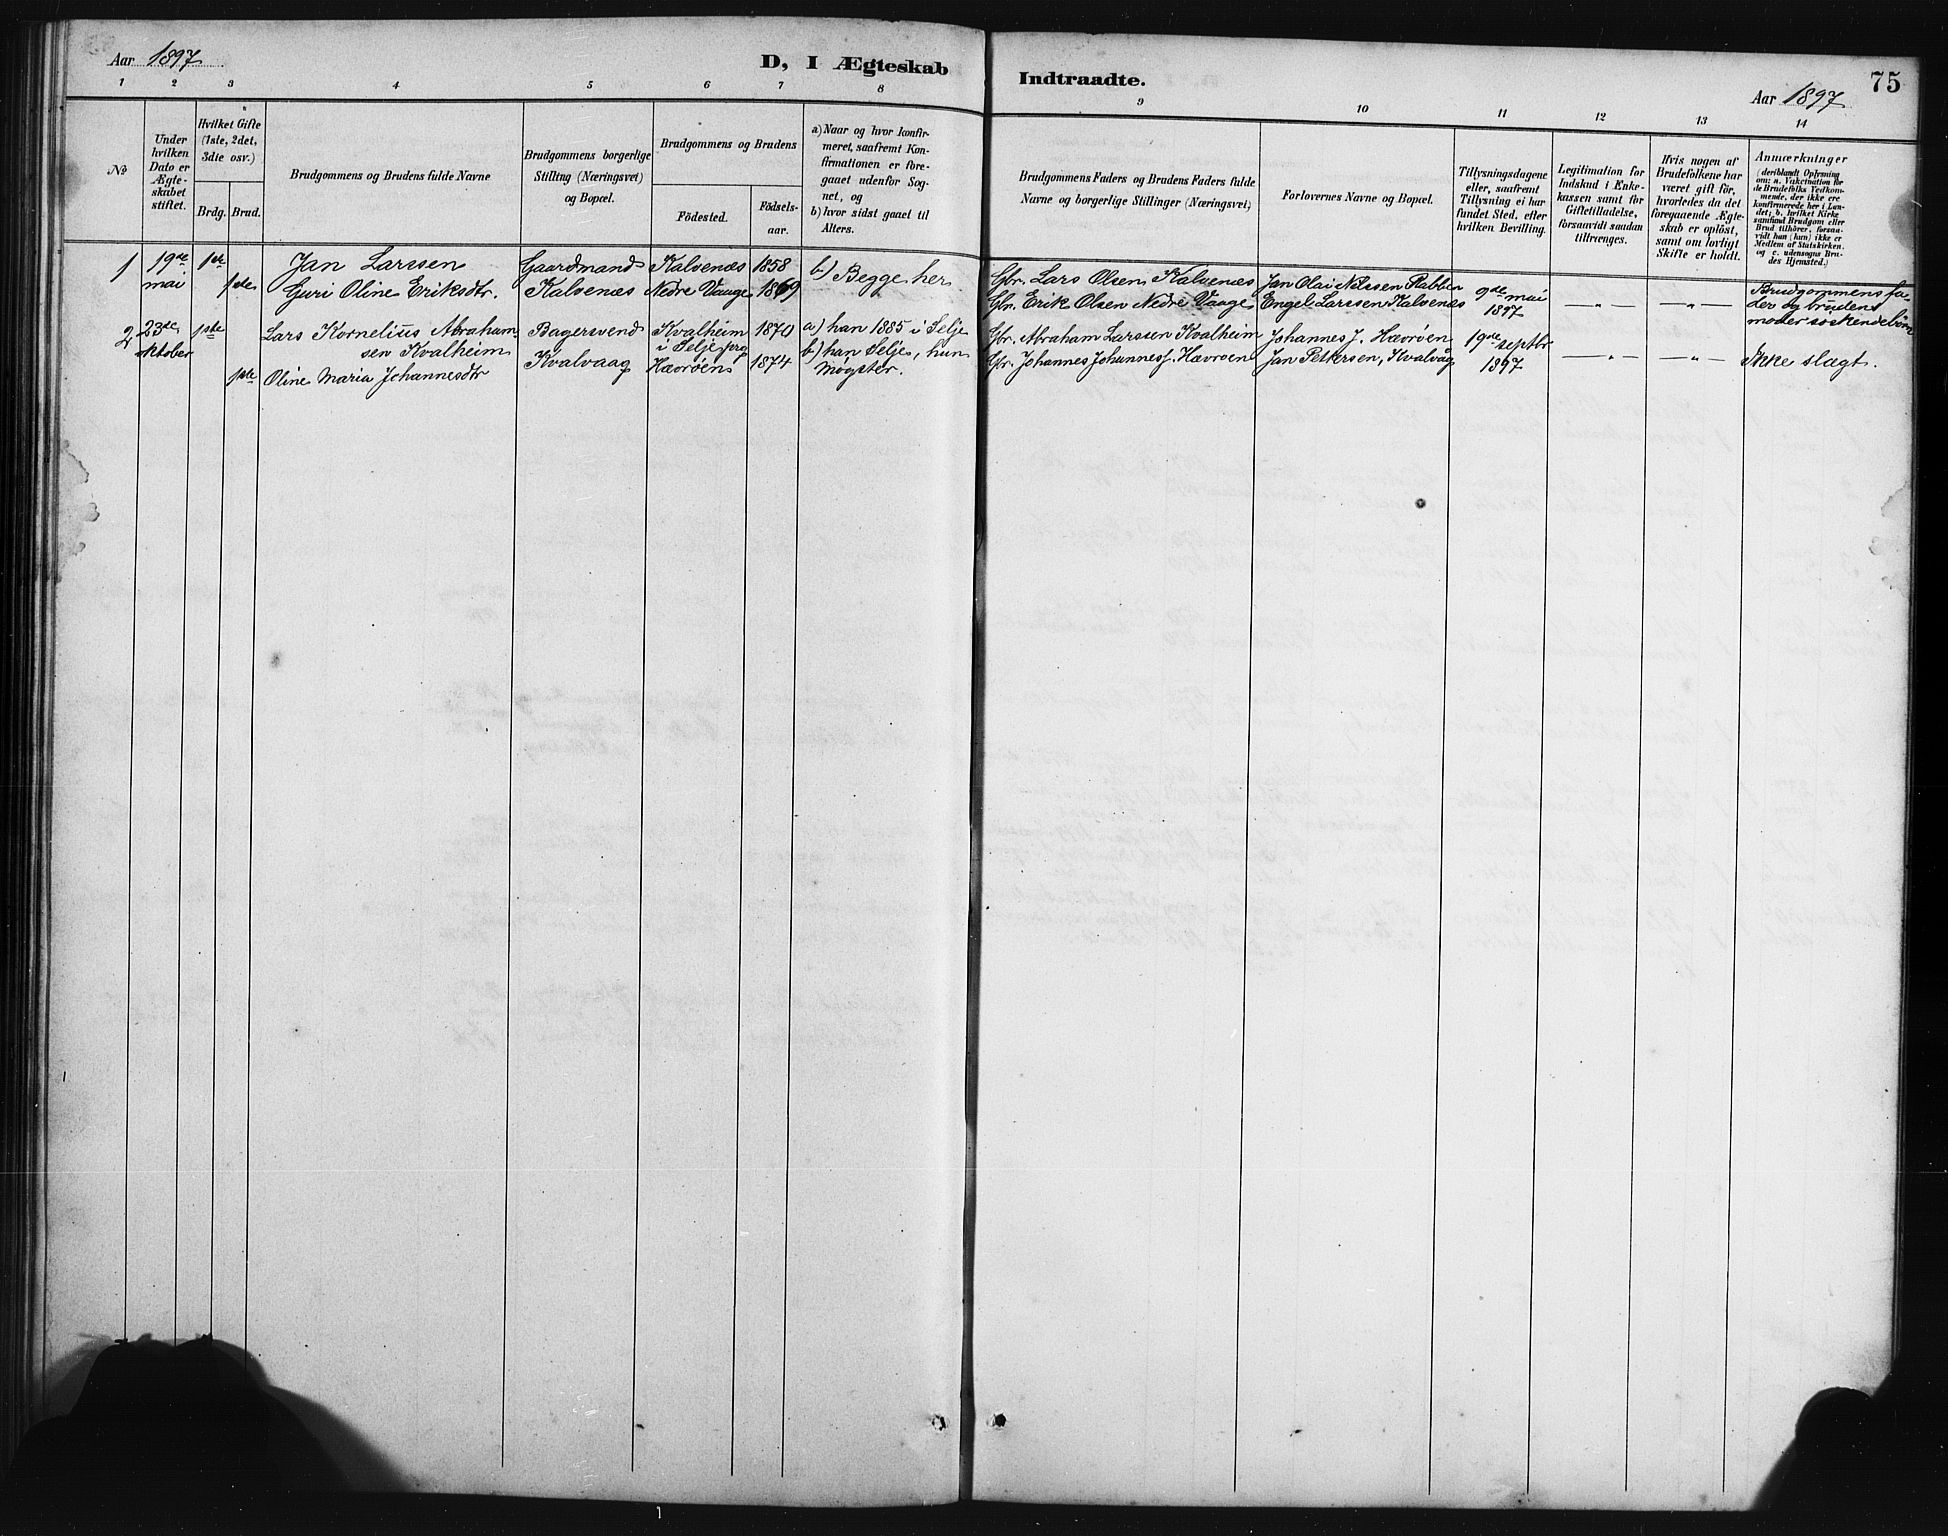 Aar 1897.
D, I Ægteskab
Indtraadte.
75
Aar 1897.
1 2 3 4 5 6 7 8 9 10 11 12 13 14
No
Under
hvilken
Dato er
Ægte-
skabet
stiftet.
Hvilket Gifte
(1ste, 2det,
3die osv.)
Brdg. Brud.
Brudgommens og Brudens fulde Navne
Brudgommens borgerlige
Stilling (Næringsvei)
og Bopæl.
Brudgommens og Brudens
Fødested.
Fødsels-
aar.
a) Naar og hvor konfir-
meret, saafremt Kon-
firmationen er fore-
gaaet udenfor Sog-
net, og
b) hvor sidst gaaet til
Alters.
Brudgommens Faders og Brudens Faders fulde
Navne og borgerlige Stillinger (Næringsvei)
Forlovernes Navne og Bopæl.
Tillysningsdagene
eller, saafremt
Tillysning ei har
fundet Sted, efter
hvilken Bevilling.
Legitimation for
Indskud i Enke-
kassen samt for
Giftetilladelse,
forsaavidt saadan
tiltrænges.
Hvis nogen af
Brudefolkene har
været gift før,
hvorledes da det
foregaaende Ægte-
skab er opløst,
samt om lovligt
Skifte er holdt.
Anmærkninger
(deriblandt Oplysning
om: a. Vakcination for
de Brudefolks Vedkom-
mende, der ikke ere
konfirmerede her i Lan-
det; b. hvilket Kirke
samfund Brudgom eller
Brud tilhører, forsaa-
vidt han (hun) ikke er
Medlem af Statskirken,
og c. udensogns Bru-
des Hjemsted.)
1
19de
mai
1ste
1ste
Jan Larssen
Guri Oline Eriksdtr.
Gaardmand
Kalvenæs
Kalvenæs
Nedre Vaage
1858
1869
b) Begge her
Gbr. Lars Olsen Kalvenæs
Gbr. Erik Olsen Nedre Vaage
Jan Olai Nilssen Rabben
Engel Larssen Kalvenæs
9de mai
1897
— „ —
— „ —
Brudgommens fa-
der og brudens
moder søskendebørn
2
23de
oktober
1ste
1ste
Lars Kornelius Abraham-
sen Kvalheim
Oline Maria Johannesdtr
Bagersvend
Kvalvaag
Kvalheim
i Selje prg
Hævrøen
1870
1874
a) han 1885 i Selje
b) han Selje, hun
Møgster.
Gbr. Abraham Larssen Kvalheim
Gbr. Johannes Johannes J. Hævrøen
Johannes J. Hævrøen
Jan Pettersen, Kvalvåg
19de septbr
1897
— „ —
— „ —
Ikke slægt.